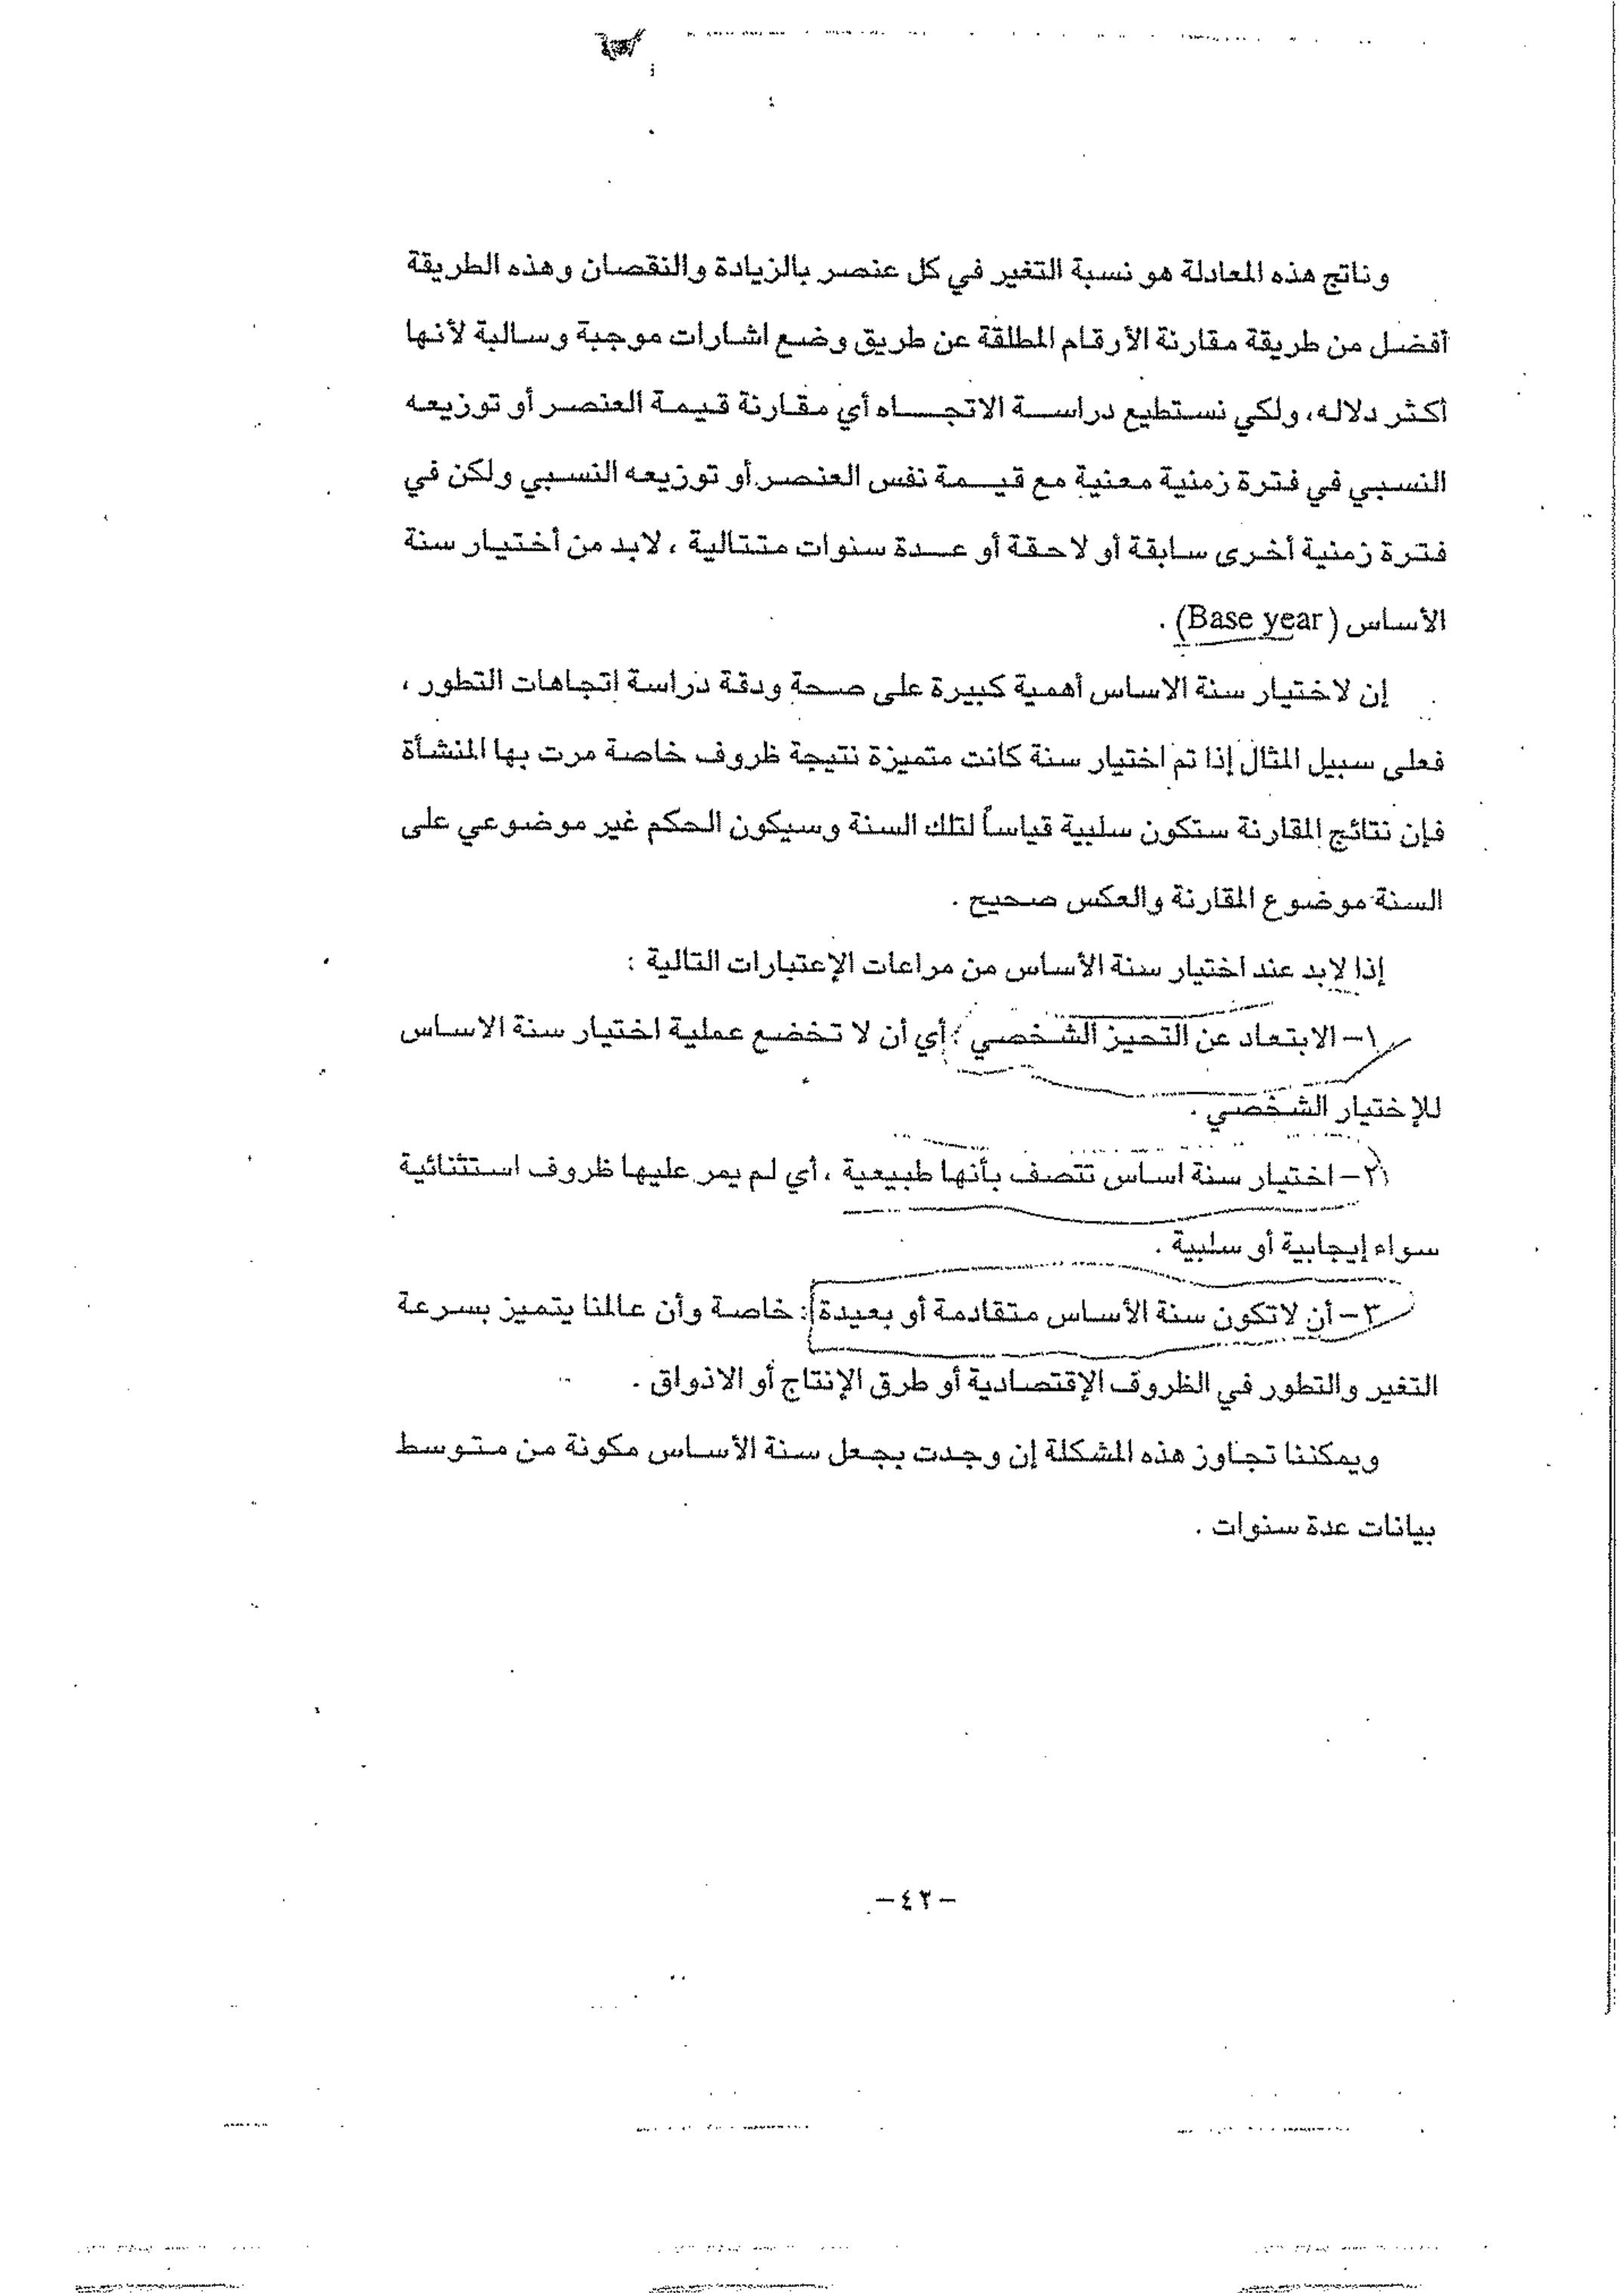 وناتج هذه المعادلة هو نسبة التغير في كل عنصر بالزيادة والنقصان وهذه الطريقة
أفضل من طريقة مقارنة الأرقام المطلقة عن طريق وضع اشارات موجبة وسالبة لأنها
أكثر دلاله، ولكي نستطيع دراسة الاتجاه أي مقارنة قيمة العنصر أو توزيعه
النسبي في فترة زمنية معنية مع قيمة نفس العنصر أو توزيعه النسبي ولكن في
فترة زمنية أخرى سابقة أو لاحقة أو عدة سنوات متتالية ، لابد من أختيار سنة
الأساس (Base year) .
إن لاختيار سنة الاساس أهمية كبيرة على صحة ودقة دراسة اتجاهات التطور ،
فعلى سبيل المثال إذا تم اختيار سنة كانت متميزة نتيجة ظروف خاصة مرت بها المنشأة
فإن نتائج المقارنة ستكون سلبية قياساً لتلك السنة وسيكون الحكم غير موضوعي على
السنة موضوع المقارنة والعكس صحيح .
إذا لابد عند اختيار سنة الأساس من مراعات الإعتبارات التالية :
١- الابتعاد عن التحيز الشخصي : أي أن لا تخضع عملية اختيار سنة الاساس
للإختيار الشخصي .
٢- اختيار سنة اساس تتصف بأنها طبيعية ، أي لم يمر عليها ظروف استثنائية
سواء إيجابية أو سلبية .
٣- أن لاتكون سنة الأساس متقادمة أو بعيدة : خاصة وأن عالمنا يتميز بسرعة
التغير والتطور في الظروف الإقتصادية أو طرق الإنتاج أو الاذواق .
ويمكننا تجاوز هذه المشكلة إن وجدت بجعل سنة الأساس مكونة من متوسط
بيانات عدة سنوات .
-٤٢-